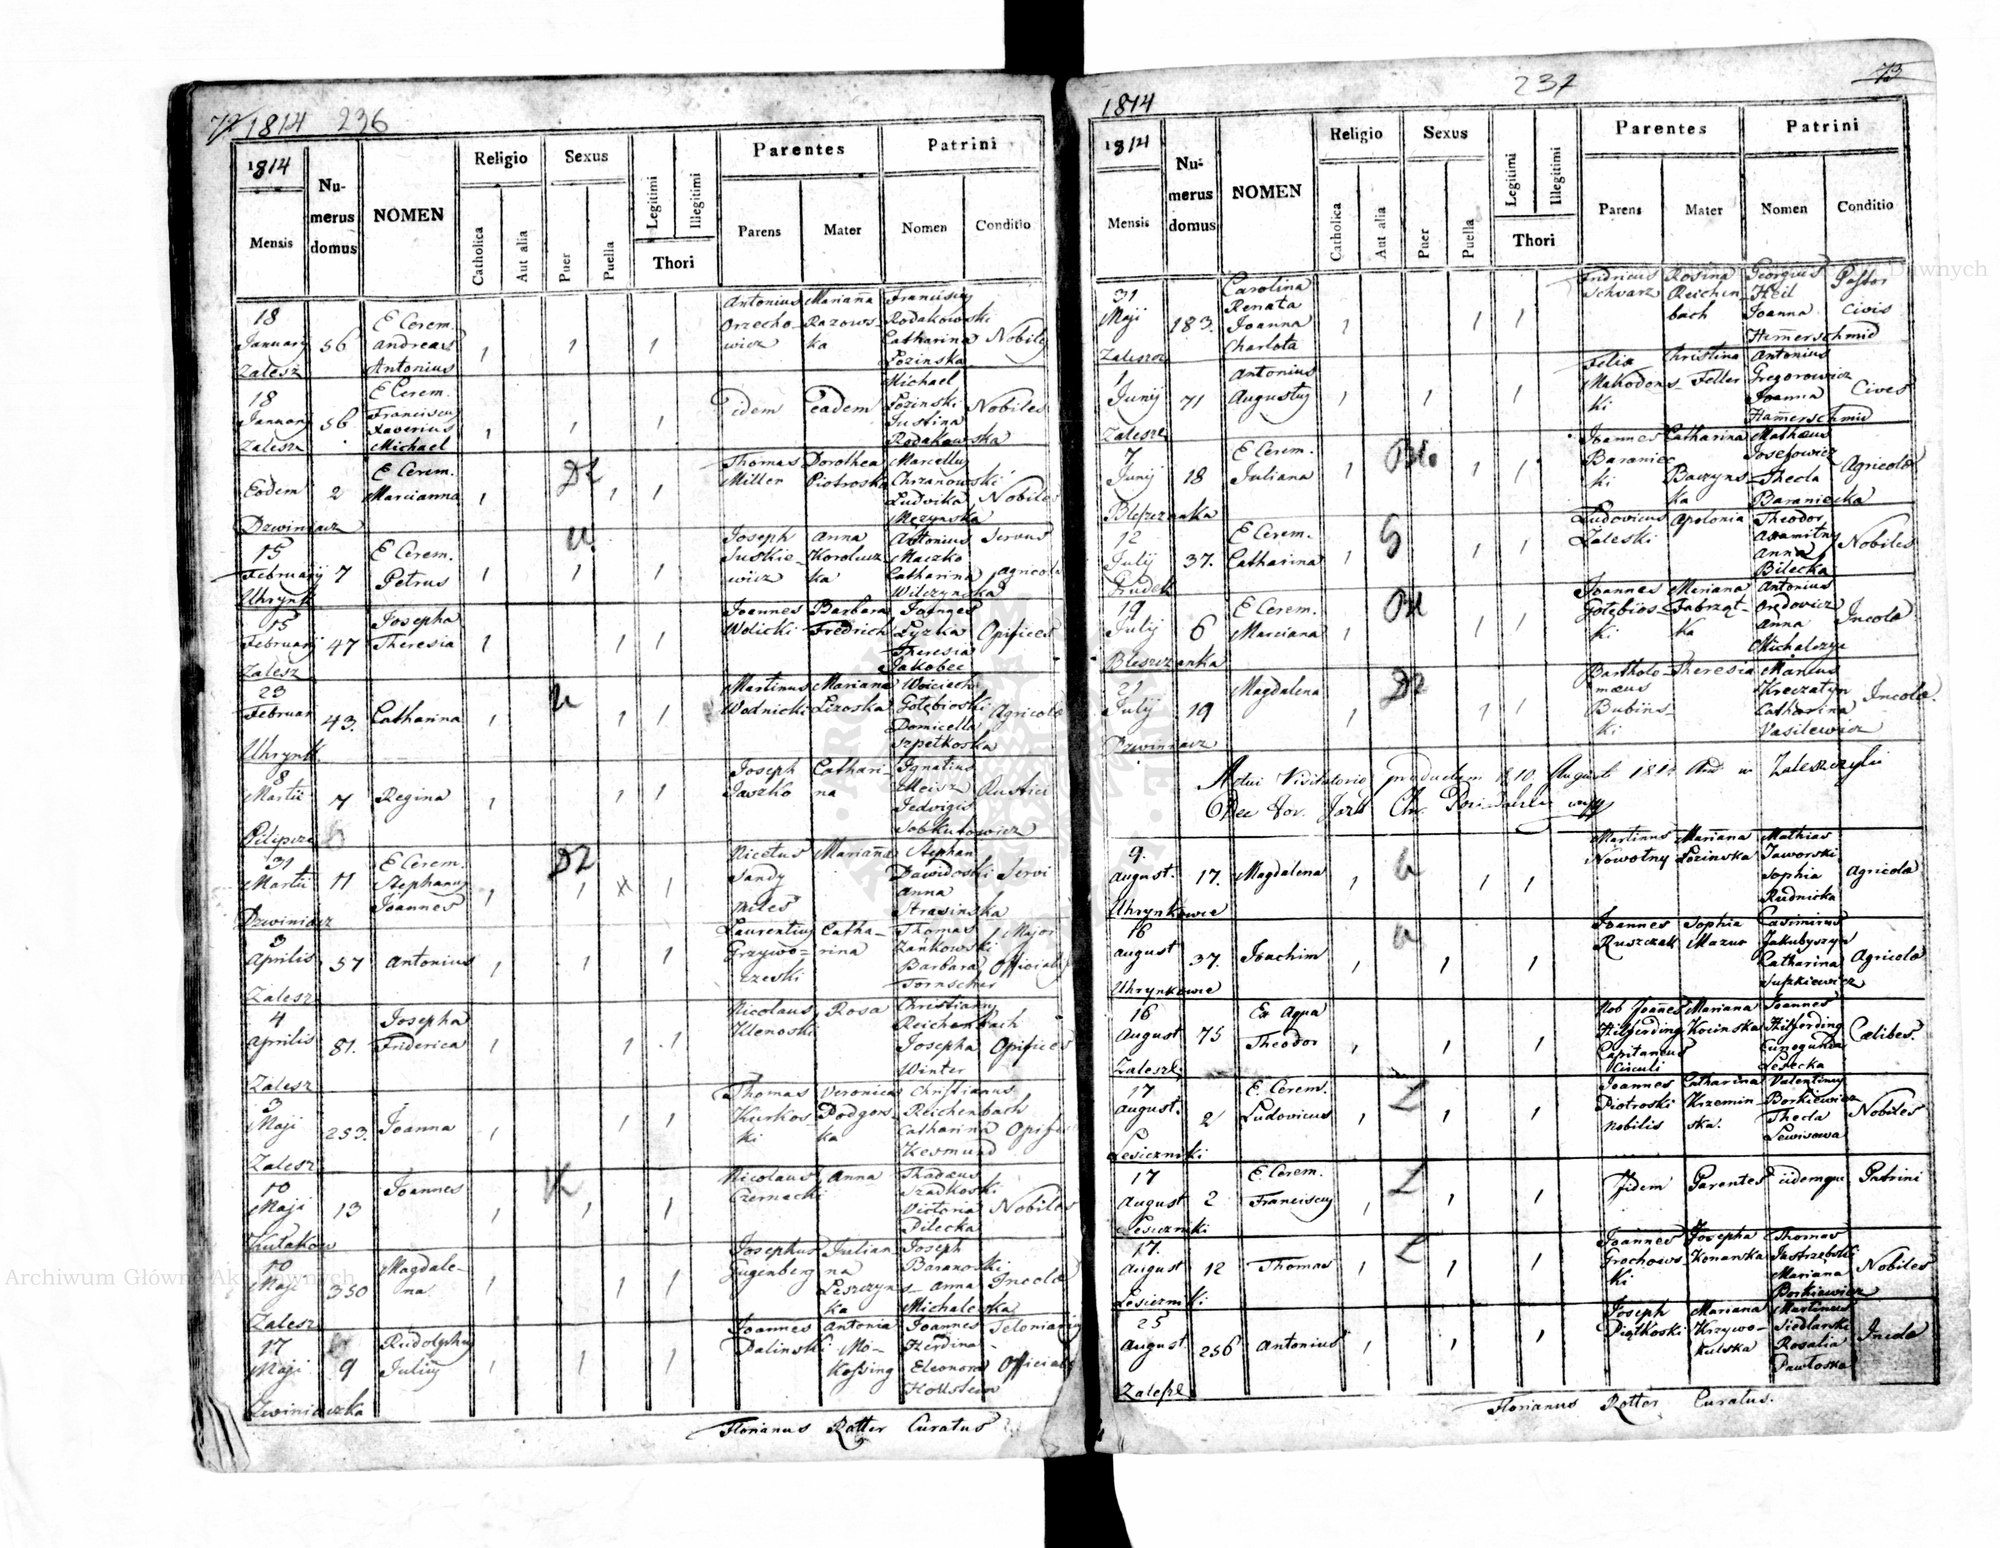 72 1814 236
1814
Mensis
Numerus domus
NOMEN
Religio
Catholica
Aut alia
Sexus
Puer
Puella
Legitimi
Illegitimi
Thori
Parentes
Parens
Mater
Patrini
Nomen
Conditio
18 January Zalesz 56 E Cerem. Andreas Antonius 1 1 1 Antonius Orzechowicz Marianna Razowska Franciscus Rodakowski Catharina Łozinska Nobiles
18 January Zalesz 56 E Cerem. Franciscus Xaverius Michael 1 1 1 Iidem Eadem Michael Łozinski Justina Rodakowska Nobiles
Eodem Dzwiniacz 2 E Cerem. Marcianna 1 Dz 1 1 Thomas Miller Dorothea Piotroska Marcellus Chrzanowski Ludwika Męzynska Nobiles
15 February Uhrynk 7 E Cerem. Petrus 1 U 1 1 Joseph Juskiewicz Anna Koroluczka Antonius Maczko Catharina Wilczynska Servus Agricola
15 February Zalesz 47 Josepha Theresia 1 1 1 Joannes Wolicki Barbara Fredrich Łyzka Theresia Jakobec Opifices
23 Februar Uhrynk 43. Catharina 1 U 1 1 Martinus Wodnicki Mariana Lizoska Woiciech Gołębioski Domicella Szpetkoska Agricola
8 Martii Pilipcze 7 Regina 1 1 1 Joseph Jaszko Catharina Ignatius Meisz Jedwigis Sobkutowicz Rustici
31 Martii Dzwiniacz 11 E Cerem. Stephanus Joannes 1 DZ 1 1 Nicetus Sandy miles Marianna Stephan Dawidoski Anna Strasinska Servi
3 Aprilis Zalesz 57 Antonius 1 1 1 Laurentius Grzyworzeski Catharina Thomas Zankowski Barbara Tornscher Major Officialis
4 Aprilis Zalesz 81. Josepha Friderica 1 1 1 Nicolaus Klenoski Rosa Christianus Reichenbach Josepha Winter Opifices
3 Maji Zalesz 253. Joanna 1 1 1 Thomas Kurkoski Veronica Podgorska Christianus Reichenbach Catharina Kesmund Opifices
10 Maji Kułakow 13 Joannes 1 K 1 1 Nicolaus Czernacki Anna Thadaeus Szadkoski Victoria Pilecka Nobiles
10 Maji Zalesz 350 Magdalena 1 1 1 Josephus Gugenberg Julianna Leszczynska Joseph Baranoski Anna Michaleska Incola
17 Maji Zwiniaczka 9 Rudolphus Julius 1 1 1 Joannes Palinski Antonia Mokossing Joannes Ferdina- Eleonora Hollstein Teloniarius Officialis
Florianus Rotter Curatus
1814 237 73
1814
Mensis
Numerus domus
NOMEN
Religio
Catholica
Aut alia
Sexus
Puer
Puella
Legitimi
Illegitimi
Thori
Parentes
Parens
Mater
Patrini
Nomen
Conditio
31 Maji Zalesz 183. Carolina Renata Joanna Charlota 1 1 1 Fridricus Schvarz Rosina Reichenbach Georgius Heil Joanna Hamerschmid Pastor Civis
1 Junij Zalesz 71 Antonius Augustus 1 1 1 Felix Makodonski Christina Feller Antonius Gregorowicz Joanna Hamerschmid Cives
7 Junij Bleszczanka 18 E Cerem. Juliana 1 Bl. 1 1 Joannes Baraniecki Catharina Baczynska Mathaeus Josefowicz Thecla Baraniecka Agricola
12 July Grudek 37. E Cerem. Catharina 1 G 1 1 Ludovicus Zaleski Apolonia Theodor Anna Bilecka Nobiles
19 July Bleszczanka 6 E Cerem. Marciana 1 1 1 Joannes Gołębioski Meriana Antonius Oredowicz Anna Michalczys Incola
21 July Dzwiniacz 19 Magdalena 1 Dz 1 1 Bartholomaeus Bubinski Theresia Marcus Kreczatyn Catharina Vasilewicz Incola.
Actui Visitatorio productum 10 August 1814 Zaleszczyki
9. August. Uhrynkowce 17. Magdalena 1 U 1 1 Martinus Nowotny Mariana Łozinska Mathias Jaworski Sophia Rudnicka Agricola
16 August Uhrynkowce 37. Joachim 1 U 1 1 Joannes Ruszczak Sophia Mazur Casimirus Jakubyszyn Catharina Juszkiewicz Agricola
16 August Zalesz. 75 Ex Aqua Theodor 1 1 1 Nob Joannes Hilferding Capitaneus Circuli Mariana Kocinska Joannes Hilferding Cunegunda Lesecka Caelibes.
17 August. Lesieczniki 2 E. Cerem. Ludovicus 1 L 1 1 Joannes Piotroski nobilis Catharina Krzeminska. Valentinus Borkiewicz Thecla Lewisowa Nobiles
17 August Lesieczniki 2 E. Cerem. Franciscus 1 L 1 1 Iidem Parentes iidemque Patrini
17. August Lesieczniki 12 Thomas 1 L 1 1 Joannes Grochowski Josepha Konarska Thomas Jastrzębski Mariana Borkiewicz Nobiles
25 August Zalesz 256 Antonius 1 1 1 Joseph Piątkoski Mariana Krzywokulska Martinus Siedlarski Rosalia Pawłoska Incola
Florianus Rotter Curatus.
Archiwum Główne Akt Dawnych